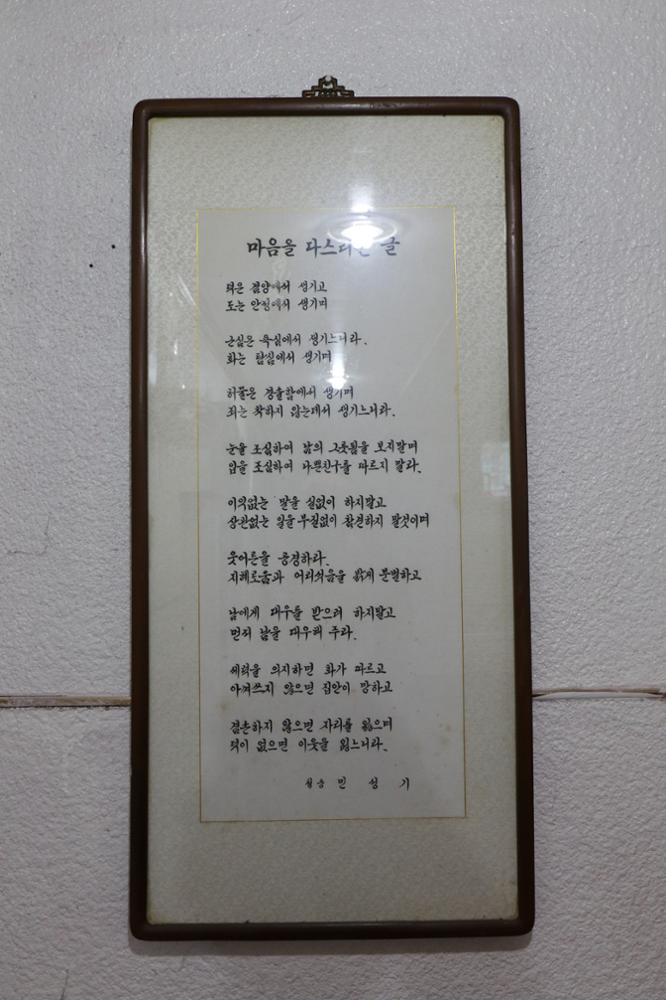 마음을 다스리는 글
덕은 겸양에서 생기고
도는 안정에서 생기며
근심은 욕심에서 생기느니라.
화는 탐심에서 생기며
허물은 경솔함에서 생기며
죄는 착하지 않는데서 생기느니라.
눈을 조심하여 남의 그릇됨을 보지말며
입을 조심하여 나쁜친구를 따르지 말라.
이익없는 말을 실없이 하지말고
상관없는 일을 부질없이 참견하지 말것이며
웃어른을 공경하라.
지혜로움과 어리석음을 밝게 분별하고
남에게 대우를 받으려 하지말고
먼저 남을 대우해 주라.
세력을 의지하면 화가 따르고
아껴쓰지 않으면 집안이 망하고
겸손하지 않으면 자리를 잃으며
덕이 없으면 이웃을 잃느니라.
민 성 기